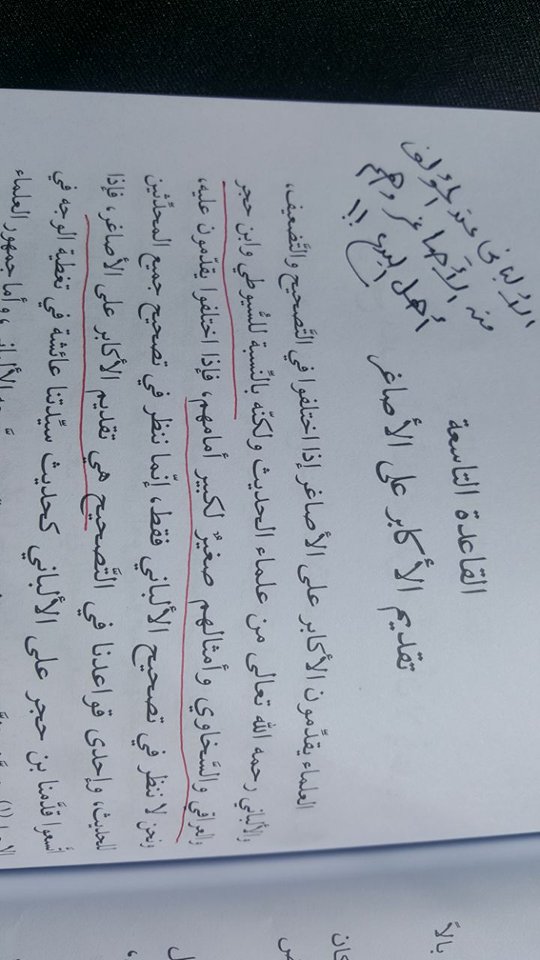 الألباني عند المؤلف
من الأصاغر وهم
أهل البدع !!
القاعدة التاسعة
تقديم الأكابر على الأصاغر
العلماء يقدّمون الأكابر على الأصاغر إذا اختلفوا في التَّصحيح والتَّضعيف،
والألباني رحمه الله تعالى من علماء الحديث ولكنّه بالنّسبة للسُّيوطي وابن حجر
والعراقي والسَّخاوي وأمثالهم صغيرٌ لكبير أمامهم، فإذا اختلفوا يقدّمون عليه،
ونحن لا ننظر في تصحيح الألباني فقط، إنّما ننظر في تصحيح جميع المحدّثين
للحديث، وإحدى قواعدنا في التَّصحيح هي تقديم الأكابر على الأصاغر، فإذا
قدَّمنا بن حجر على الألباني كحديث سيّدتنا عائشة في تغطية الوجه في
وأما جمهور العلماء
(١)
بالاً
كان